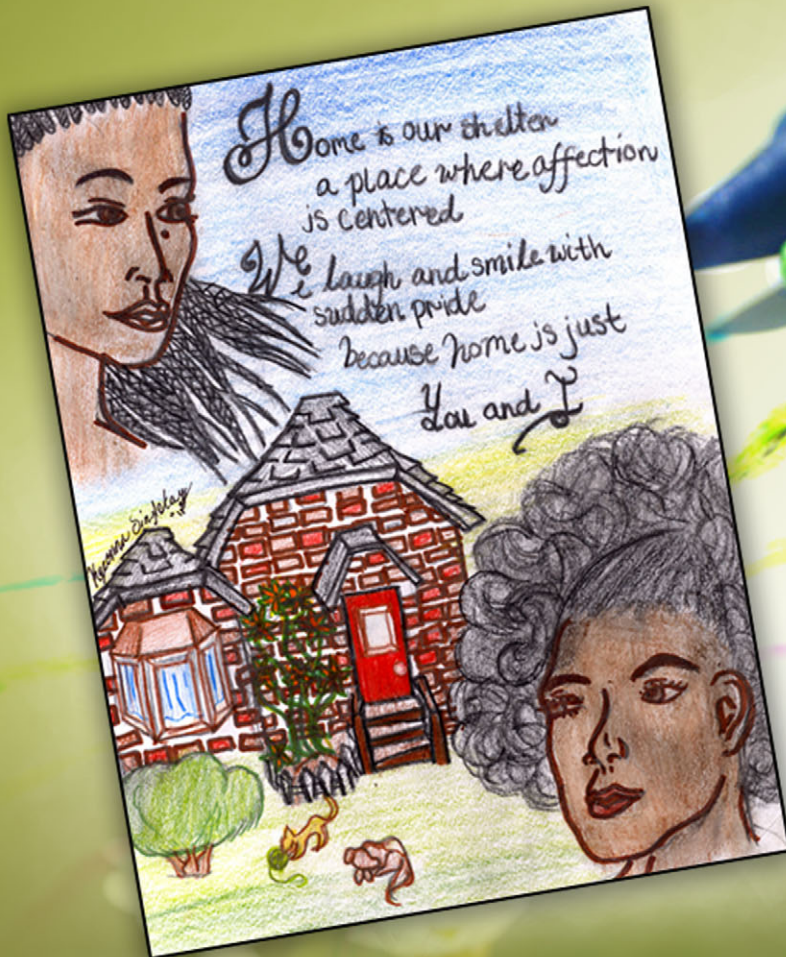 Home is our shelter
a place where affection
is centered
We laugh and smile with
sudden pride
because home is just
You and I